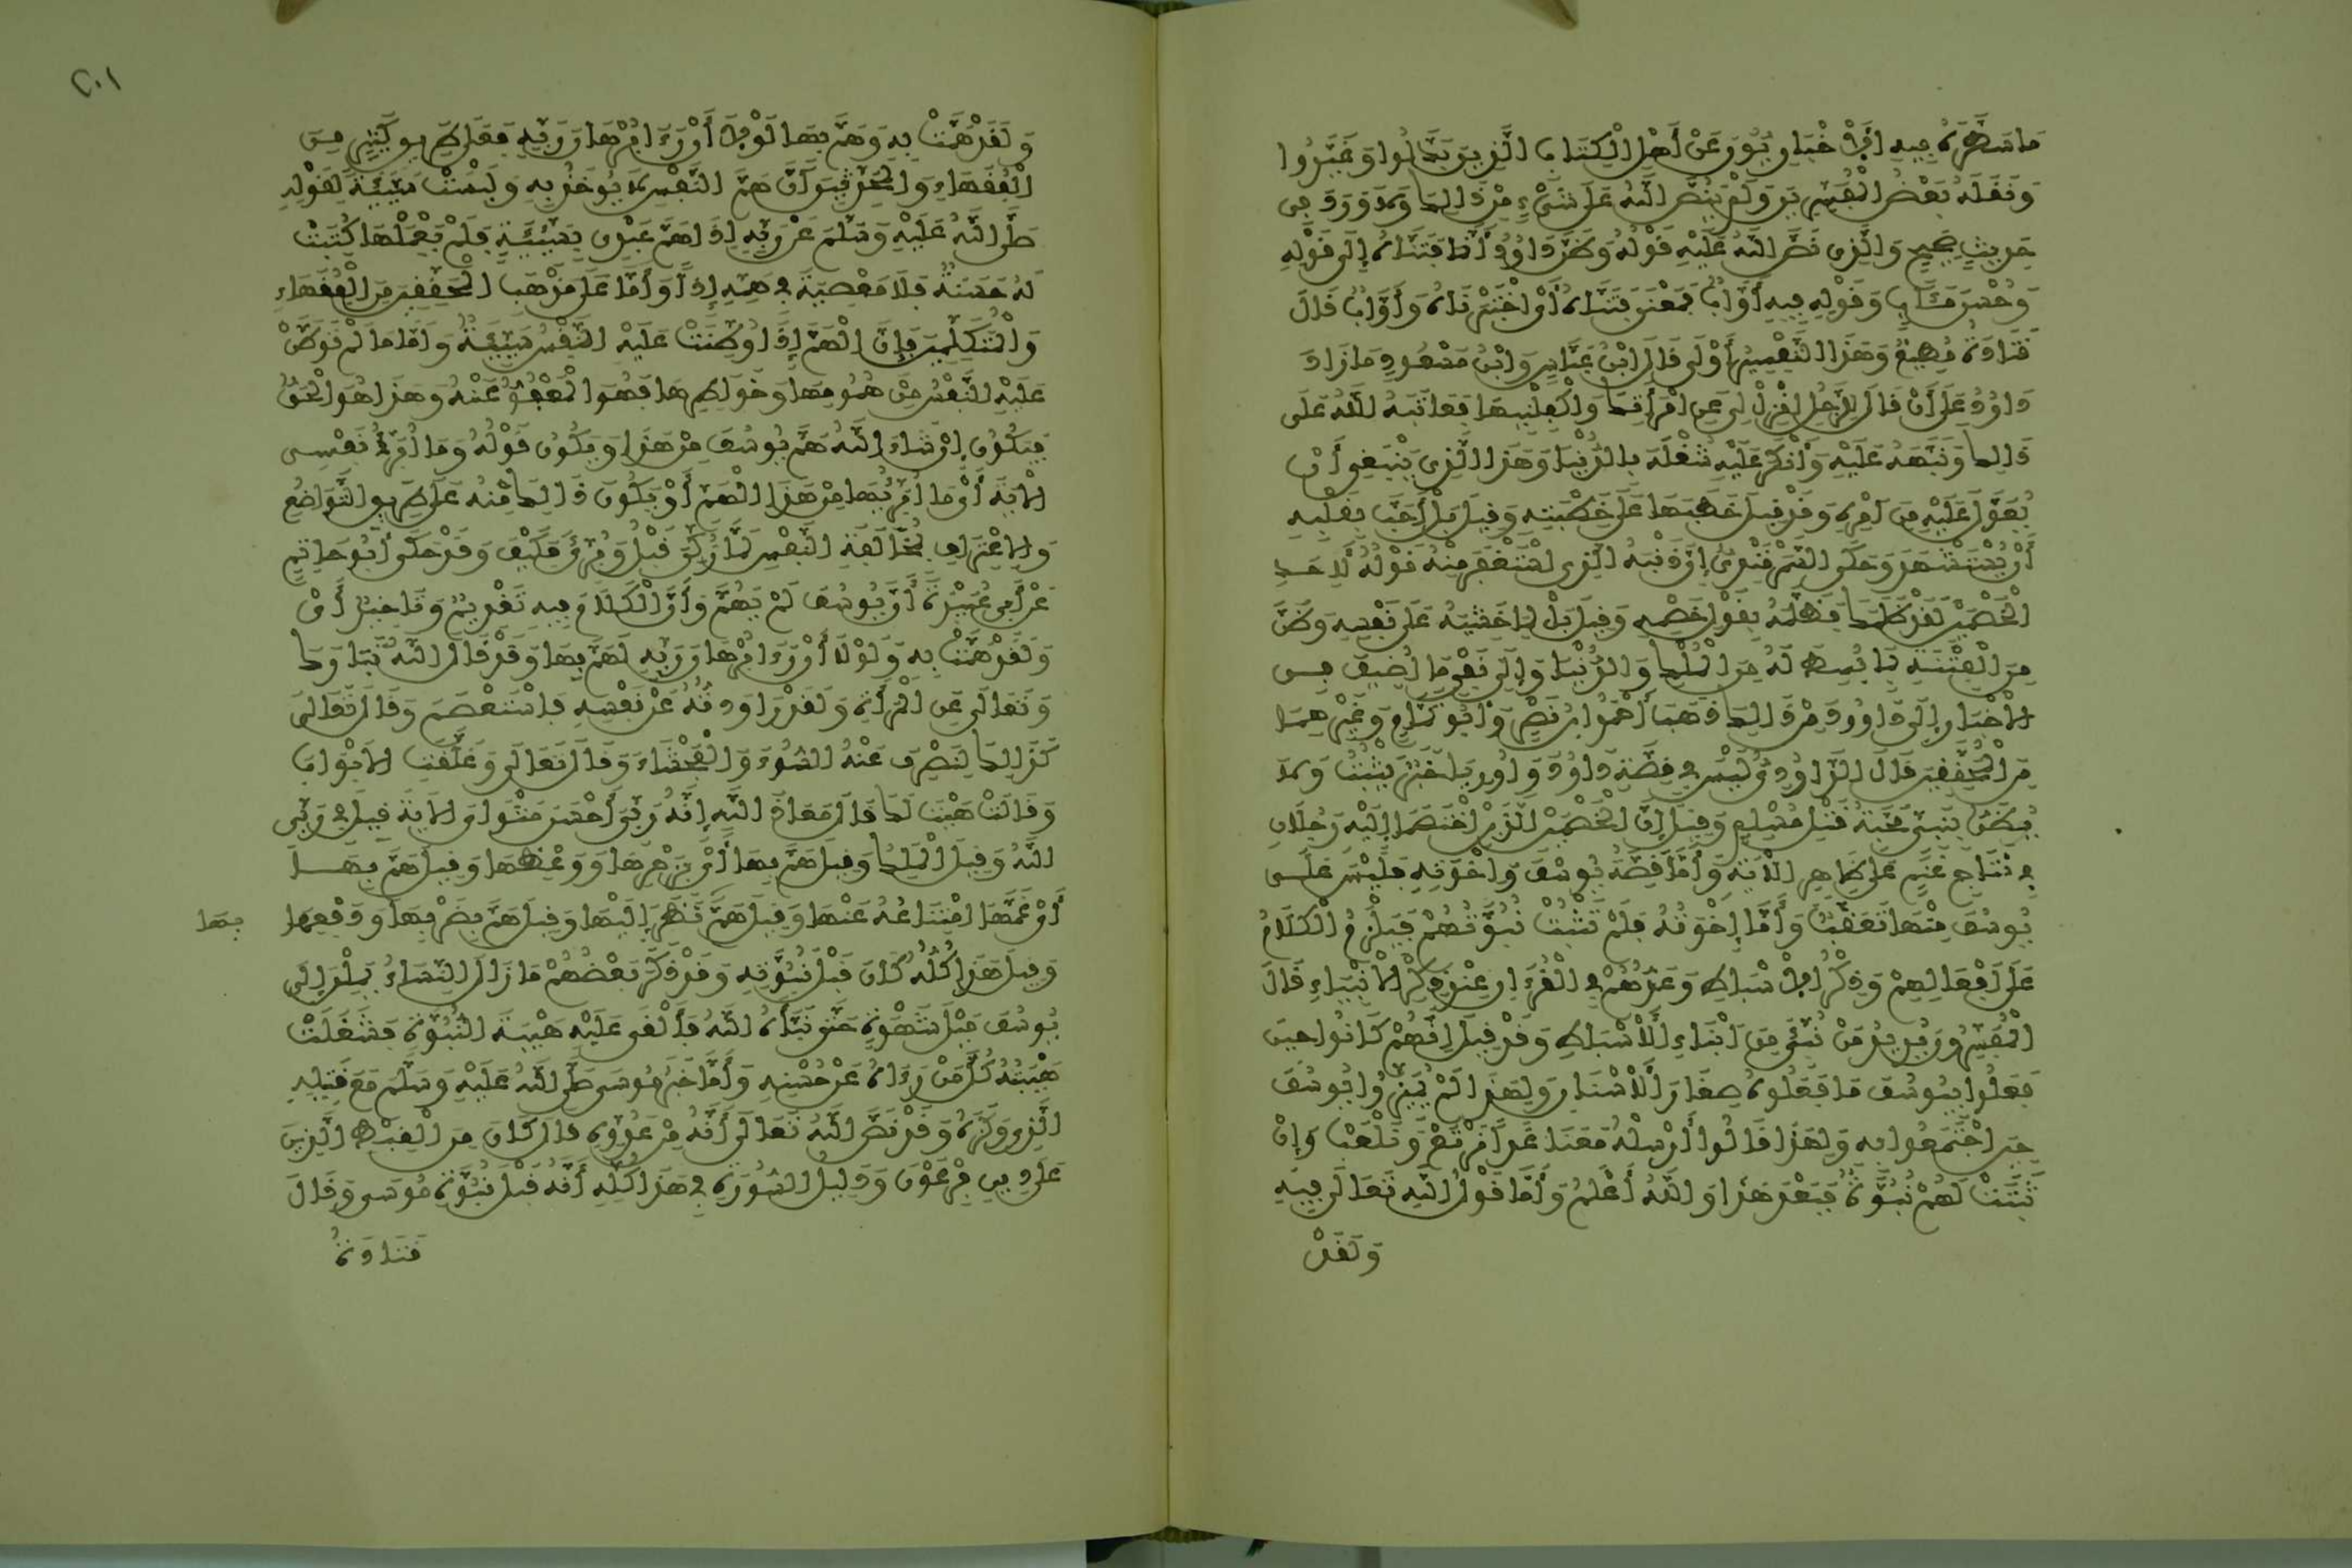 مَا سَطَّرَهُ فِيهِ الْأَخْبَارِيُّونَ عَنْ أَهْلِ الْكِتَابِ الَّذِينَ بَدَّلُوا وَغَيَّرُوا
وَنَقَلَهُ بَعْضُ الْمُفَسِّرِينَ وَلَمْ يَنُصَّ اللَّهُ عَلَى شَيْءٍ مِنْ ذَلِكَ وَلَا وَرَدَ فِي
حَدِيثٍ صَحِيحٍ وَالَّذِي نَصَّ اللَّهُ عَلَيْهِ قَوْلُهُ وَظَنَّ دَاوُودُ أَنَّمَا فَتَنَّاهُ إِلَى قَوْلِهِ
وَحُسْنَ مَئَابٍ وَقَوْلِهِ فِيهِ أَوَّابٌ فَمَعْنَى فَتَنَّاهُ أَيِ اخْتَبَرْنَاهُ وَأَوَّابٌ قَالَ
قَتَادَةُ مُطِيعٌ وَهَذَا التَّفْسِيرُ أَوْلَى قَالَ ابْنُ عَبَّاسٍ وَابْنُ مَسْعُودٍ مَا زَادَ
دَاوُدُ عَلَى أَنْ قَالَ لِلرَّجُلِ انْزِلْ لِي عَنِ امْرَأَتِكَ وَاكْفِلْنِيهَا فَعَاتَبَهُ اللَّهُ عَلَى
ذَلِكَ وَنَبَّهَهُ عَلَيْهِ وَأَنْكَرَ عَلَيْهِ شُغْلَهُ بِالدُّنْيَا وَهَذَا الَّذِي يَنْبَغِي أَنْ
يُعَوَّلَ عَلَيْهِ مِنْ أَمْرِهِ وَقَدْ قِيلَ خَطَبَهَا عَلَى خِطْبَتِهِ وَقِيلَ بَلْ أَحَبَّ بِقَلْبِهِ
أَنْ يُسْتَشْهَدَ وَحَكَى السَّمَرْقَنْدِيُّ إِنَّ ذَنْبَهُ الَّذِي اسْتَغْفَرَ مِنْهُ قَوْلُهُ لِأَحَدِ
الْخَصْمَيْنِ لَقَدْ ظَلَمَكَ فَظَلَّمَهُ بِقَوْلِ خَصْمِهِ وَقِيلَ بَلْ لِمَا خَشِيَهُ عَلَى نَفْسِهِ وَظَنَّ
مِنَ الْفِتْنَةِ بِمَا بُسِطَ لَهُ مِنَ الْمُلْكِ وَالدُّنْيَا وَإِلَى نَفْيِ مَا أُضِيفَ فِي
الْأَخْبَارِ إِلَى دَاوُودَ مِنْ ذَلِكَ ذَهَبَ أَحْمَدُ ابْنُ نَصْرٍ وَأَبُو تَمَّامٍ وَغَيْرُهُمَا
مِنَ الْمُحَقِّقِينَ قَالَ الدَّاوُدِيُّ لَيْسَ فِي قِصَّةِ دَاوُدَ وَأُورِيَا خَبَرٌ يَثْبُتُ وَلَا
يُظَنُّ بِنَبِيٍّ مَحَبَّةُ قَتْلِ مُسْلِمٍ وَقِيلَ إِنَّ الْخَصْمَيْنِ الَّذَيْنِ اخْتَصَمَا إِلَيْهِ رَجُلَانِ
فِي نِتَاجِ غَنَمٍ عَلَى ظَاهِرِ الْآيَةِ وَأَمَّا قِصَّةُ يُوسُفَ وَإِخْوَتِهِ فَلَيْسَ عَلَى
يُوسُفَ مِنْهَا تَعَقُّبٌ وَأَمَّا إِخْوَتُهُ فَلَمْ تَثْبُتْ نُبُوَّتُهُمْ فَيَلْزَمُ الْكَلَامُ
عَلَى أَفْعَالِهِمْ وَذِكْرُ الْأَسْبَاطِ وَعَدُّهُمْ فِي الْقُرْءَانِ عِنْدَ ذِكْرِ الْأَنْبِيَاءِ قَالَ
الْمُفَسِّرُونَ يُرِيدُ مَنْ نُبِّئَ مِنْ أَبْنَاءِ الْأَسْبَاطِ وَقَدْ قِيلَ إِنَّهُمْ كَانُوا حِينَ
فَعَلُوا بِيُوسُفَ مَا فَعَلُوهُ صِغَارَ الْأَسْنَانِ وَلِهَذَا لَمْ يُمَيِّزُوا يُوسُفَ
حِينَ اجْتَمَعُوا بِهِ وَلِهَذَا قَالُوا أَرْسِلْهُ مَعَنَا غَدًا نَرْتَعْ وَنَلْعَبْ وَإِنْ
ثَبَتَتْ لَهُمْ نُبُوَّةٌ فَبَعْدَ هَذَا وَاللَّهُ أَعْلَمُ وَأَمَّا قَوْلُ اللَّهِ تَعَالَى فِيهِ
وَلَقَدْ
٢٠١
وَلَقَدْ هَمَّتْ بِهِ وَهَمَّ بِهَا لَوْلَا أَنْ رَءَا بُرْهَانَ رَبِّهِ فَعَلَى طَرِيقِ كَثِيرٍ مِنَ
الْفُقَهَاءِ وَالْمُحَدِّثِينَ أَنَّ هَمَّ النَّفْسِ لَا يُؤَاخَذُ بِهِ وَلَيْسَتْ سَيِّئَةً لِقَوْلِهِ
صَلَّى اللَّهُ عَلَيْهِ وَسَلَّمَ عَنْ رَبِّهِ إِذَا هَمَّ عَبْدِي بِسَيِّئَةٍ فَلَمْ يَعْمَلْهَا كُتِبَتْ
لَهُ حَسَنَةٌ فَلَا مَعْصِيَةَ فِي هَمِّهِ إِذًا وَأَمَّا عَلَى مَذْهَبِ الْمُحَقِّقِينَ مِنَ الْفُقَهَاءِ
وَالْمُتَكَلِّمِينَ فَإِنَّ الْهَمَّ إِذَا وُطِّنَتْ عَلَيْهِ النَّفْسُ سَيِّئَةٌ وَأَمَّا مَا لَمْ تُوَطَّنْ
عَلَيْهِ النَّفْسُ مِنْ هُمُومِهَا وَخَوَاطِرِهَا فَهُوَ الْمَعْفُوُّ عَنْهُ وَهَذَا هُوَ الْحَقُّ
فَيَكُونُ إِنْ شَاءَ اللَّهُ هَمُّ يُوسُفَ مِنْ هَذَا وَيَكُونُ قَوْلُهُ وَمَا أُبَرِّئُ نَفْسِي
الْآيَةَ أَيْ مَا أُبَرِّئُهَا مِنْ هَذَا الْهَمِّ أَوْ يَكُونُ ذَلِكَ مِنْهُ عَلَى طَرِيقِ التَّوَاضُعِ
وَالِاعْتِرَافِ بِمُخَالَفَةِ النَّفْسِ لِمَا زُكِّيَ قَبْلُ وَبُرِّئَ فَكَيْفَ وَقَدْ حَكَى أَبُو حَاتِمٍ
عَنْ أَبِي عُبَيْدَةَ أَنَّ يُوسُفَ لَمْ يَهُمَّ وَأَنَّ الْكَلَامَ فِيهِ تَقْدِيمٌ وَتَأْخِيرٌ أَيْ
وَلَقَدْ هَمَّتْ بِهِ وَلَوْلَا أَنْ رَءَا بُرْهَانَ رَبِّهِ لَهَمَّ بِهَا وَقَدْ قَالَ اللَّهُ تَبَارَكَ
وَتَعَالَى عَنِ الْمَرْأَةِ وَلَقَدْ رَاوَدْتُهُ عَنْ نَفْسِهِ فَاسْتَعْصَمَ وَقَالَ تَعَالَى
كَذَلِكَ لِنَصْرِفَ عَنْهُ السُّوءَ وَالْفَحْشَاءَ وَقَالَ تَعَالَى وَغَلَّقَتِ الْأَبْوَابَ
وَقَالَتْ هَيْتَ لَكَ قَالَ مَعَاذَ اللَّهِ إِنَّهُ رَبِّي أَحْسَنَ مَثْوَايَ الْآيَةَ قِيلَ فِي رَبِّي
اللَّهُ وَقِيلَ الْمَلِكُ وَقِيلَ هَمَّ بِهَا أَيْ بِزَجْرِهَا وَوَعْظِهَا وَقِيلَ هَمَّ بِهَا
أَيْ غَمَّهَا امْتِنَاعُهُ عَنْهَا وَقِيلَ هَمَّ نَظَرَ إِلَيْهَا وَقِيلَ هَمَّ بِضَرْبِهَا وَدَفْعِهَا
بها
وَقِيلَ هَذَا كُلُّهُ كَانَ قَبْلَ نُبُوَّتِهِ وَقَدْ ذَكَرَ بَعْضُهُمْ مَا زَالَ النِّسَاءُ يَمِلْنَ إِلَى
يُوسُفَ مَيْلَ شَهْوَةٍ حَتَّى نَبَّأَهُ اللَّهُ فَأَلْقَى عَلَيْهِ هَيْبَةَ النُّبُوَّةِ فَشَغَلَتْ
هَيْبَتُهُ كُلَّ مَنْ رَءَاهُ عَنْ حُسْنِهِ وَأَمَّا خَبَرُ مُوسَى صَلَّى اللَّهُ عَلَيْهِ وَسَلَّمَ مَعَ قَتِيلِهِ
الَّذِي وَكَزَهُ وَقَدْ نَصَّ اللَّهُ تَعَالَى أَنَّهُ مِنْ عَدُوِّهِ قَالَ كَانَ مِنَ الْقِبْطِ الَّذِينَ
عَلَى دِينِ فِرْعَوْنَ وَدَلِيلُ السُّورَةِ فِي هَذَا كُلِّهِ أَنَّهُ قَبْلَ نُبُوَّةِ مُوسَى وَقَالَ
قَتَادَةُ